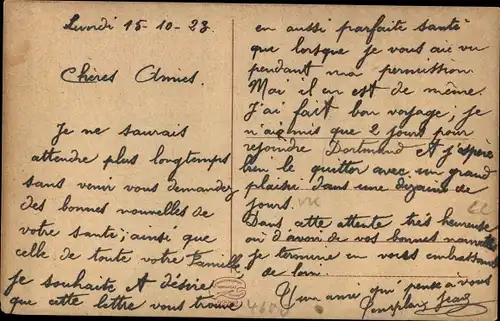 Lundi 15-10-23
Chères Amies.
Je ne saurais
attendre plus longtemps
sans venir vous demandez
des bonnes nouvelles de
votre santé; ainsi que
celle de toute votre Famille
je souhaite et désire
que cette lettre vous trouve
en aussi parfaite santé
que lorsque je vous ai vu
pendant ma permission.
Moi il en est de même.
J'ai fait bon voyage; je
n'ai mis que 2 jours pour
rejoindre Dortmund et j'espère
bien le quitter avec un grand
plaisir dans une dizaine de
jours.
Dans cette attente très heureuse
ou d'avoir de vos bonnes nouvelles
je termine en vous embrassant
de loin.
D'un ami qui pense à vous
Jean